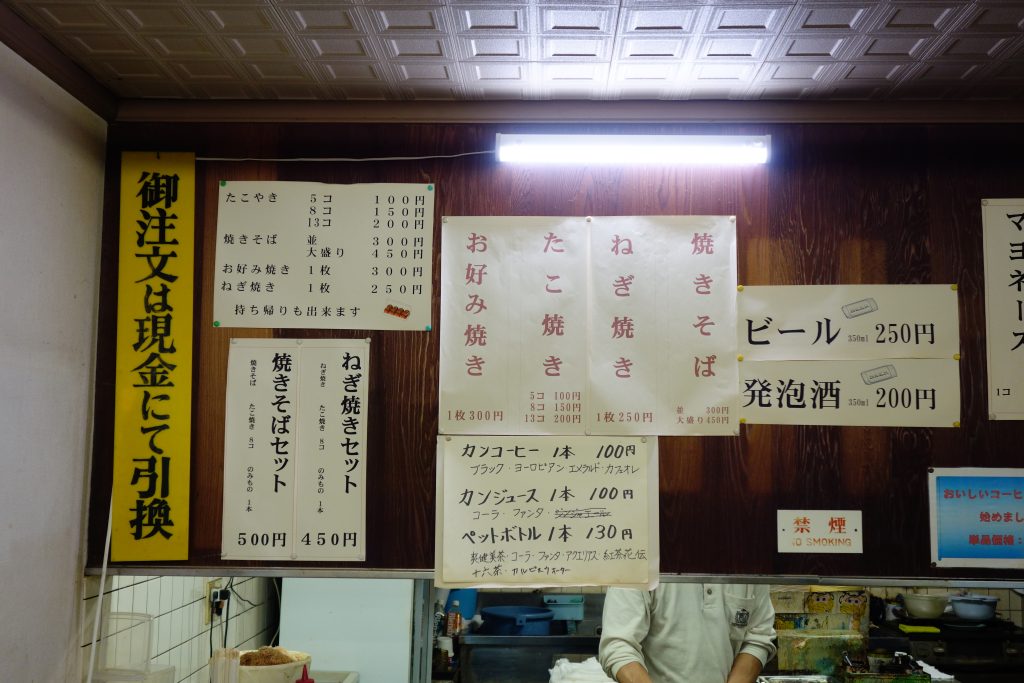 御注文は現金にて引換
たこやき 5コ 100円
8コ 150円
13コ 200円
焼きそば 並 300円
大盛り 450円
お好み焼き 1枚 300円
ねぎ焼き 1枚 250円
持ち帰りも出来ます
ねぎ焼きセット
ねぎ焼き たこ焼き 8コ のみもの 1本
450円
焼きそばセット
焼きそば たこ焼き 8コ のみもの 1本
500円
焼きそば
並 300円
大盛り450円
ねぎ焼き
1枚250円
たこ焼き
5コ 100円
8コ 150円
13コ 200円
お好み焼き
1枚300円
カンコーヒー 1本 100円
ブラック・ヨーロピアン エメラルド・カフェオレ
カンジュース 1本 100円
コーラ・ファンタ・
ペットボトル 1本 130円
爽健美茶・コーラ・ファンタ・アクエリアス・紅茶花伝
十六茶・カルピスウォーター
ビール 350ml 250円
発泡酒 350ml 200円
マヨネーズ
1コ
禁煙
NO SMOKING
おいしいコーヒ
始めまし
単品価格: